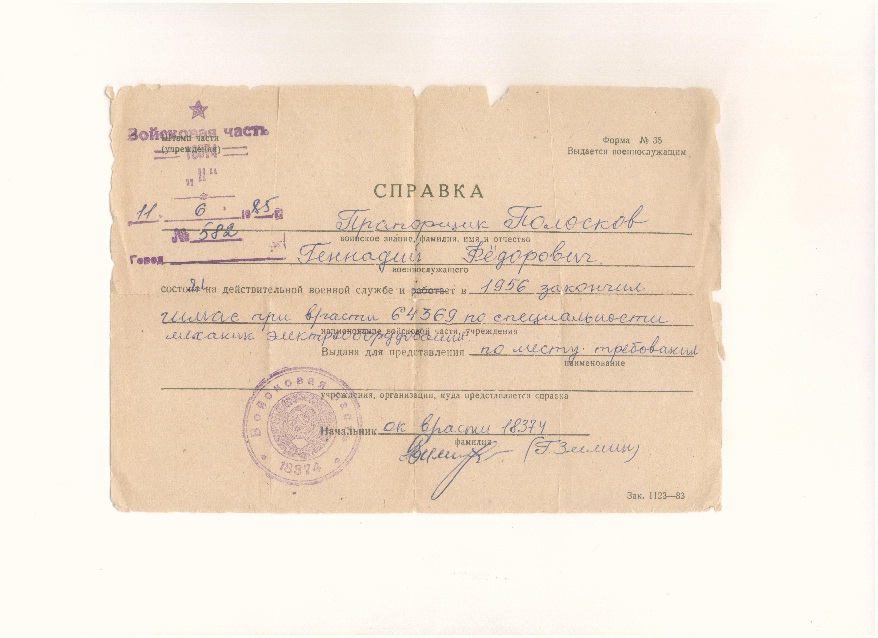 Войсковая часть
(учреждения)
"П"
Форма № 35
Выдается военнослужащим
СПРАВКА
11. 6 1985
№ 582
Прапорщик Полосков
воинское звание, фамилия, имя и отчество
Город
Геннадий Фёдорович.
военнослужащего
состоял на действительной военной службе и работает в 1956 закончил
при в/части 64369 по специальности
наименование войсковой части, учреждения
механик электрооборудования
Выдана для представления по месту требования
наименование
учреждения, организации, куда представляется справка
Войсковая часть
18374
Начальник ОК в/части 18374
фамилия
(Г Зимин)
Зак. 1123—83